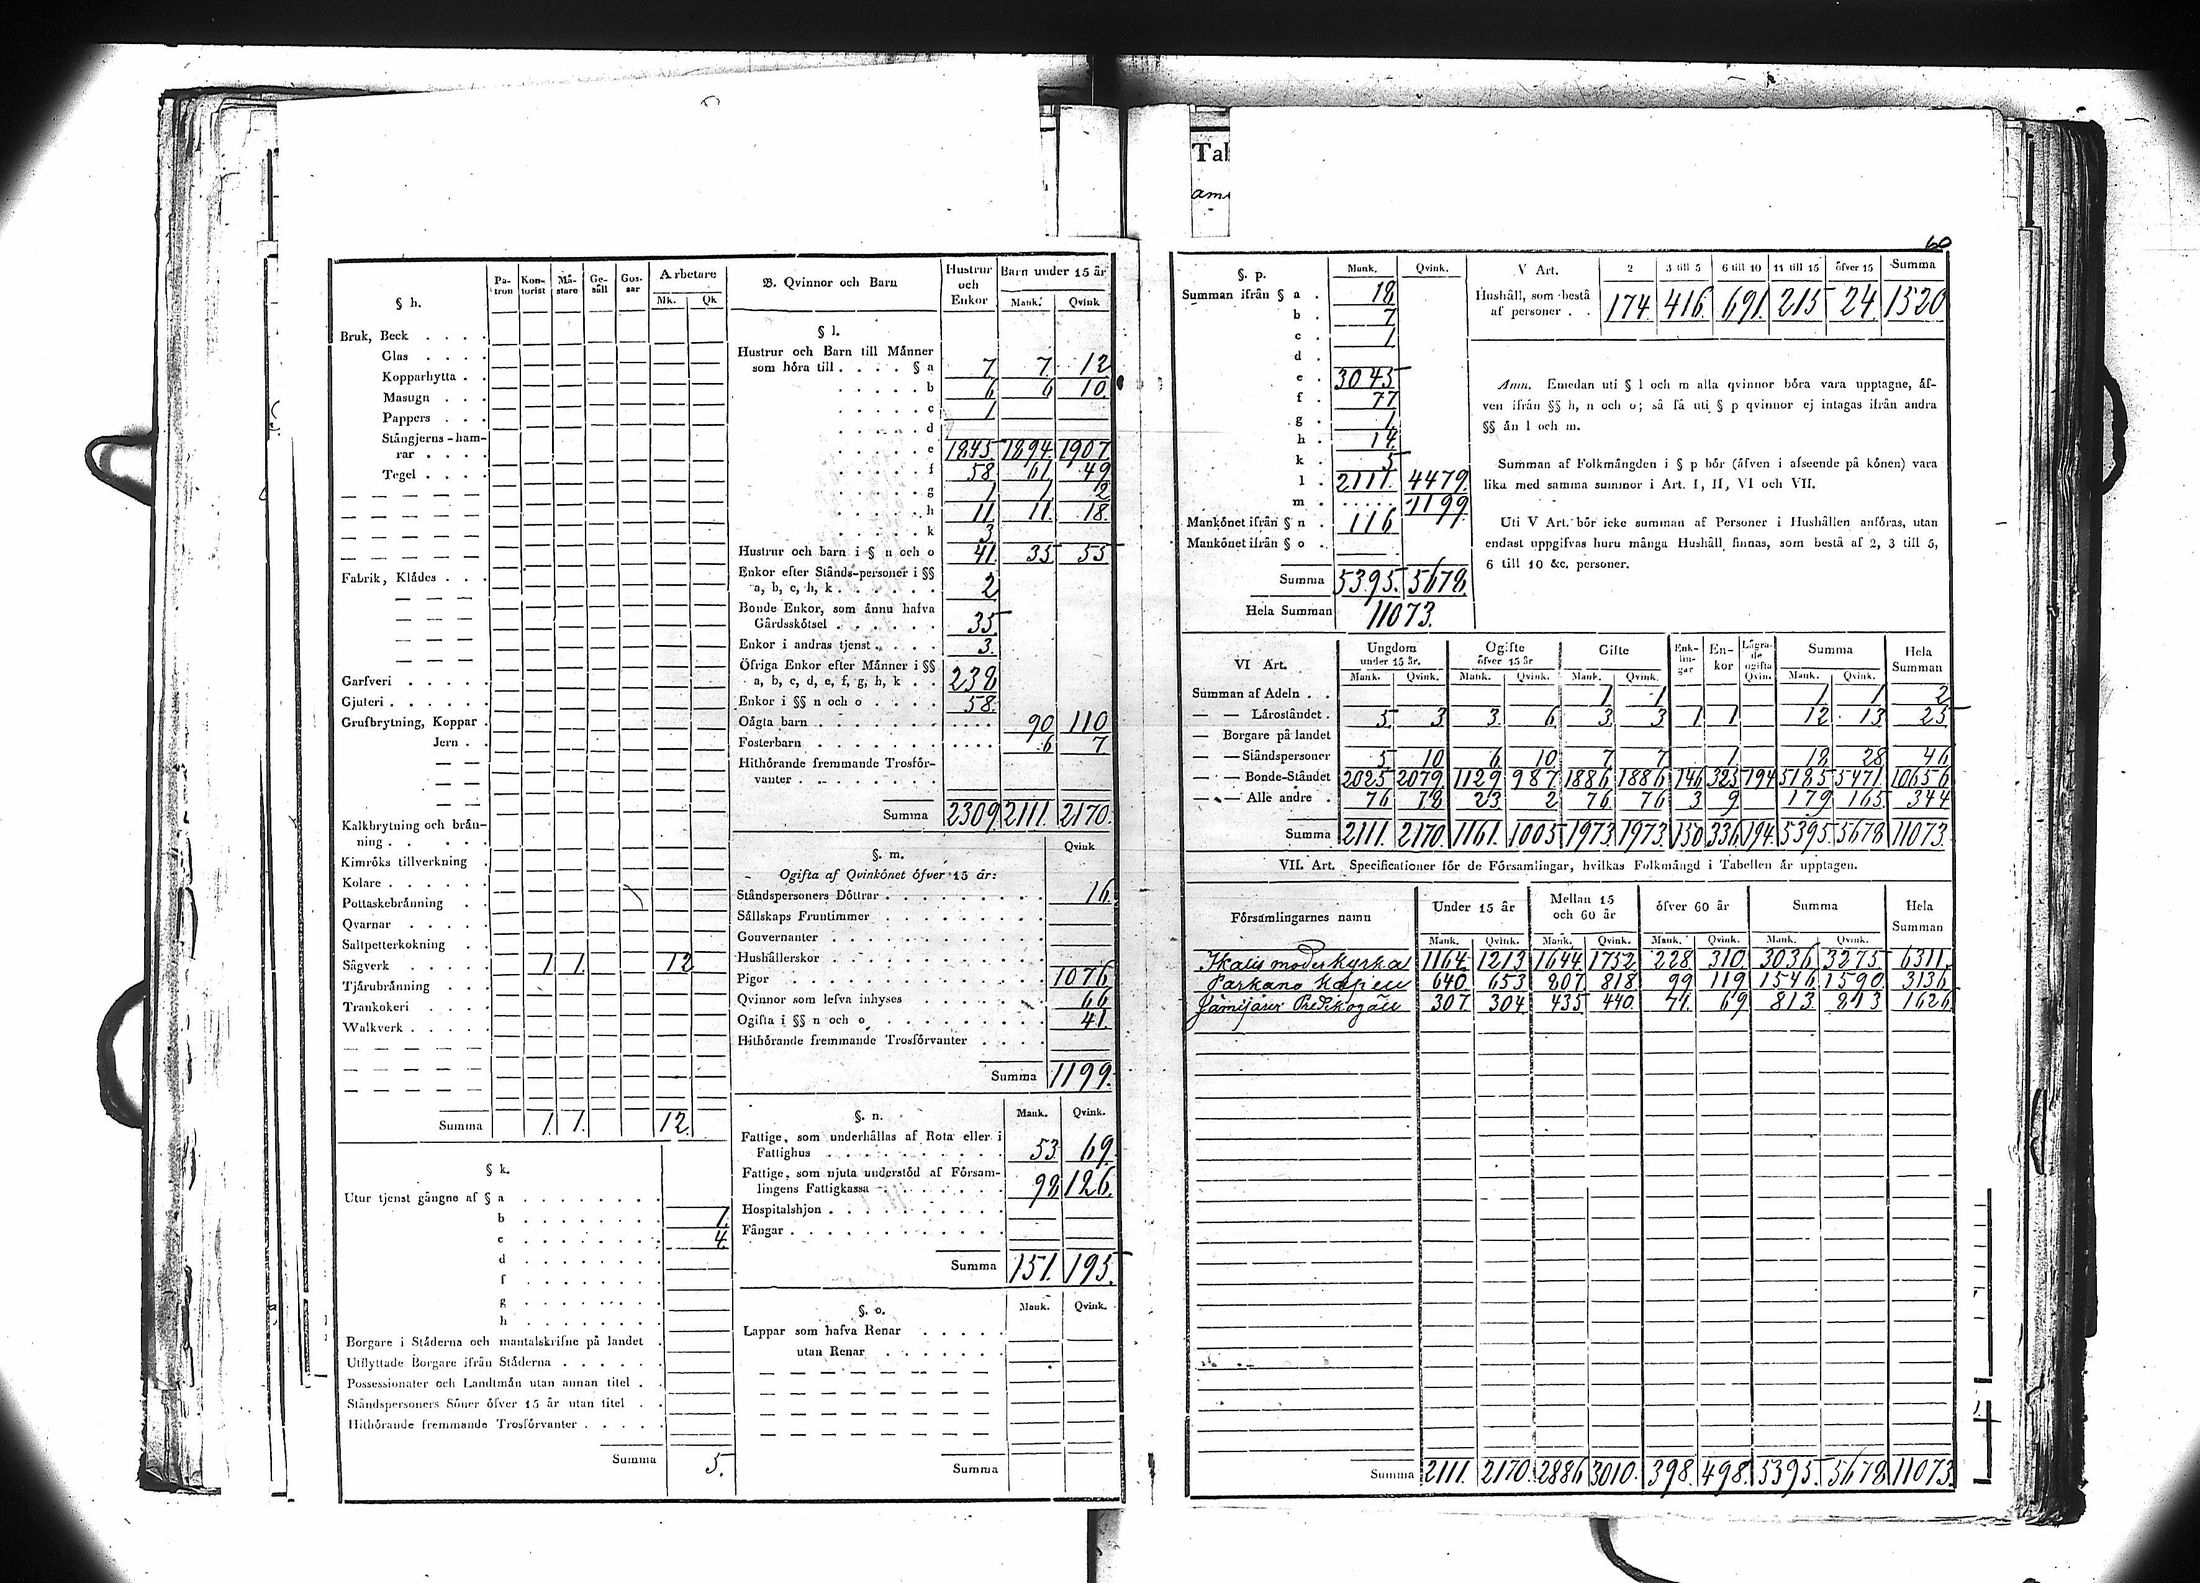 Tal
am
60
§ h.
Patron Kontorist Mästare Gesäll Gossar Arbetare
Mk. Qk
Bruk, Beck . . . .
Glas . . . .
Kopparhytta . .
Masugn . . .
Pappers . . .
Stångjerns-ham-
rar . . . .
Tegel . . . .
Fabrik, Klådes . . .
Garfveri . . . . .
Gjuteri . . . . . .
Grufbrytning, Koppar .
Jern . .
Kalkbrytning och brån-
ning . . . . . .
Kimröks tillverkning .
Kolare . . . . . .
Pottaskebränning . .
Qvarnar . . . .
Saltpetterkokning . .
Sågverk . . . . . 1 1 12
Tjärubränning . . .
Trankokeri . . . .
Walkverk . . . . .
Summa 1. 1. 12.
§ k.
Utur tjenst gångne af § a . . . . . . . .
b . . . . . . . 1.
c . . . . . . . 4.
d . . . . . . .
f . . . . . . .
g . . . . . . .
h . . . . . . .
Borgare i Ståderna och mantalskrifne på landet .
Utflyttade Borgare ifrån Ståderna . . . . . .
Possessionater och Landtmån utan annan titel . .
Ståndspersoners Söner öfver 15 år utan titel . .
Hithörande fremmande Trosförvanter . . . . .
Summa 5.
B. Qvinnor och Barn
Hustrur och Enkor Barn under 15 år
Mank. Qvink
§ l.
Hustrur och Barn till Månner
som höra till . . . . § a 7 7. 12
. . . . . b 6 6 10.
. . . . . c 1
. . . . . d
. . . . . e 1845. 1894. 1907
. . . . . f 58. 61. 49
. . . . . g 1 1 2
. . . . . h 11 11. 18.
. . . . . k 3
Hustrur och barn i § n och o 41. 35 55
Enkor efter Stånds-personer i §§
a, b, c, h, k . . . . . . 2
Bonde Enkor, som ånnu hafva
Gårdsskötsel . . . . . . 35.
Enkor i andras tjenst . . . . 3.
Öfriga Enkor efter Månner i §§
a, b, c, d, e, f, g, h, k . . 238
Enkor i §§ n och o . . . . 58.
Oägta barn . . . . . . . . . . . 90 110
Fosterbarn . . . . . . . . . . . 6 7
Hithörande fremmande Trosför-
vanter . . . . . . . .
Summa 2309 2111. 2170.
§. m.
Qvink
Ogifta af Qvinkönet öfver 15 år:
Ståndspersoners Döttrar . . . . . . . . . 16.
Sällskaps Fruntimmer . . . . . . . . .
Gouvernanter . . . . . . . . . . .
Hushållerskor . . . . . . . . . . .
Pigor . . . . . . . . . . . . . 1076
Qvinnor som lefva inhyses . . . . . . . 66
Ogifta i §§ n och o . . . . . . . . . 41.
Hithörande fremmande Trosförvanter . . . .
Summa 1199.
§. n. Mank. Qvink.
Fattige, som underhållas af Rota eller i
Fattighus . . . . . . . . . . 53 69.
Fattige, som njuta understöd af Försam-
lingens Fattigkassa . . . . . . . 98 126.
Hospitalshjon . . . . . . . . . . .
Fångar . . . . . . . . . . . . .
Summa 151. 195.
§. o. Mank. Qvink.
Lappar som hafva Renar . . . . .
utan Renar . . . . . .
Summa
§. p. Mank. Qvink.
Summan ifrån § a . 18
b . 7
c . 1
d .
e . 3045
f . 77
g . 1
h . 14
k . 5
l . 2111. 4479.
m . . . . . . 1199.
Mankönet ifrån § n . 116
Mankönet ifrån § o .
Summa 5395. 5678
Hela Summan 11073.
V Art. 2 3 till 5 6 till 10 11 till 15 öfver 15 Summa
Hushåll, som bestå
af personer . . 174. 416. 691. 215 24. 1520
Anm. Emedan uti § l och m alla qvinnor böra vara upptagne, äf-
ven ifrån §§ h, n och o; så få uti § p qvinnor ej intagas ifrån andra
§§ än l och m.
Summan af Folkmängden i § p bör (äfven i afseende på könen) vara
lika med samma summor i Art. I, II, VI och VII.
Uti V Art. bör icke summan af Personer i Hushållen anföras, utan
endast uppgifvas huru många Hushåll finnas, som bestå af 2, 3 till 5,
6 till 10 &c. personer.
VI Art. Ungdom under 15 år. Ogifte öfver 15 år Gifte Enklingar Enkor Lägrade ogifta Qvin. Summa Hela Summan
Mank. Qvink. Mank. Qvink. Mank. Qvink. Mank. Qvink.
Summan af Adeln . . 1 1 1 1 2
— — Läroståndet . 5 3 3. 6 3 3 1 1 12 13 25
— Borgare på landet
— — Ståndspersoner 5 10 6 10 7 7 1 18 28 46
— — Bonde-Ståndet 2025 2079. 1129 987 1886 1886 146 325 194 5185 5471. 10656
— — Alle andre . 76 78 23 2 76 76 3 9 179 165 344
Summa 2111. 2170. 1161. 1005 1973. 1973. 150 336. 194. 5395. 5678 11073.
VII. Art. Specificationer för de Församlingar, hvilkas Folkmängd i Tabellen är upptagen.
Församlingarnes namn Under 15 år Mellan 15 och 60 år öfver 60 år Summa Hela Summan
Mank. Qvink. Mank. Qvink. Mank. Qvink. Mank. Qvink.
Ikalis moderkyrka 1164. 1213 1644 1752 228 310. 3036. 3275. 6311.
Parkano Kapell 640. 653 807 818 99 119 1546. 1590. 3136.
Jämijärvi Predikogäll 307. 304 435 440. 71. 69 813 813 1626
Summa 2111. 2170. 2886 3010. 398. 498. 5395. 5678 11073.